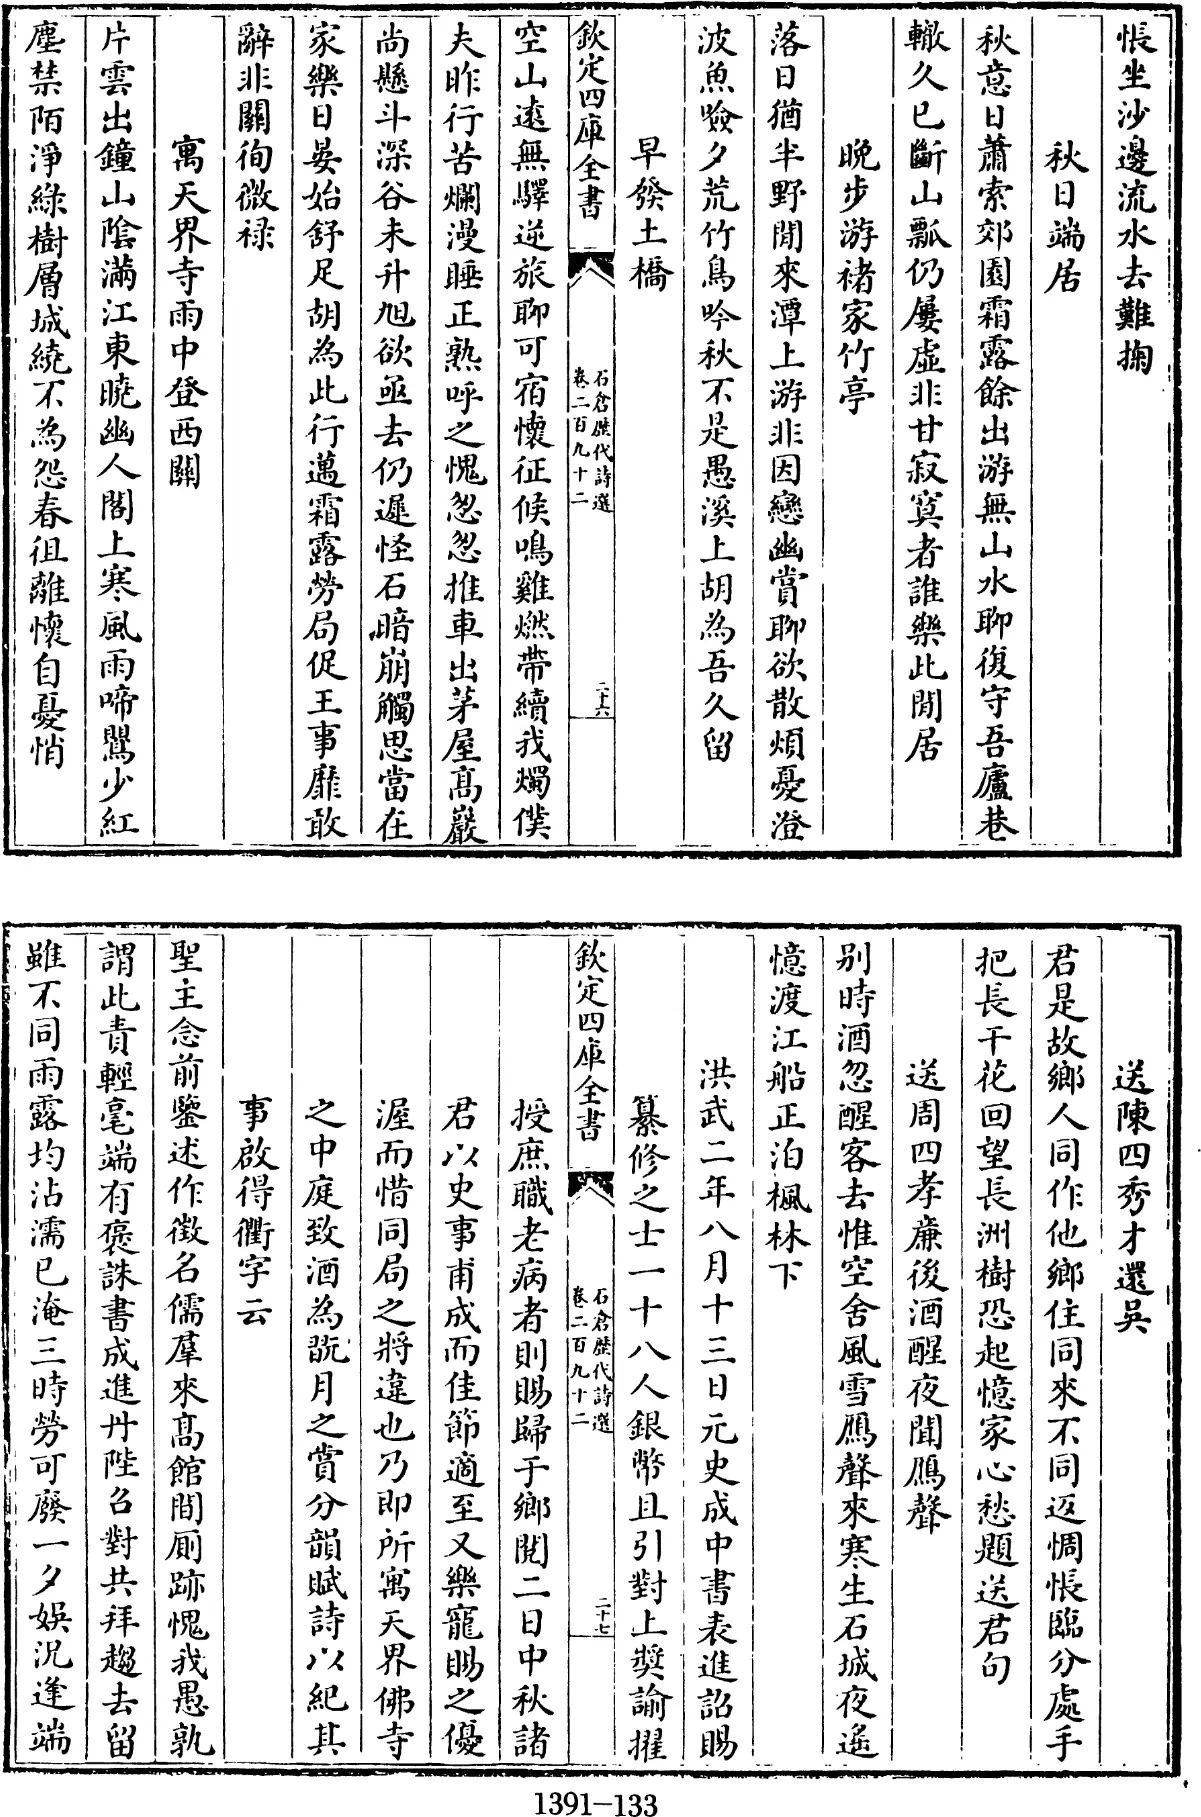 悵坐沙邊流水去難掬
秋日端居
秋意日蕭索郊園霜露餘出游無山水聊復守吾廬巷
轍久已斷山瓢仍屢虛非甘寂寞者誰樂此閒居
晚步游褚家竹亭
落日猶半野閒來潭上游非因戀幽賞聊欲散煩憂澄
波魚噞夕荒竹鳥吟秋不是愚溪上胡為吾久留
早發土橋
欽定四庫全書
石倉歷代詩選
卷二百九十二
二十六
空山遠無驛逆旅聊可宿懷征候鳴雞燃帶續我燭僕
夫昨行苦爛漫睡正熟呼之愧怱怱推車出茅屋髙巖
尚懸斗深谷未升旭欲亟去仍遲怪石暗崩觸思當在
家樂日晏始舒足胡為此行邁霜露勞局促王事靡敢
辭非關徇微祿
寓天界寺雨中登西閣
片雲出鐘山陰滿江東曉幽人閣上寒風雨啼鶯少紅
塵禁陌淨綠樹層城繞不為怨春徂離懷自憂悄
送陳四秀才還吳
君是故鄉人同作他鄉住同來不同返惆悵臨分處手
把長干花回望長洲樹恐起憶家心愁題送君句
送周四孝廉後酒醒夜聞鴈聲
别時酒忽醒客去惟空舍風雪鴈聲來寒生石城夜遙
憶渡江船正泊楓林下
洪武二年八月十三日元史成中書表進詔賜
纂修之士一十八人銀幣且引對上奬諭擢
欽定四庫全書
石倉歷代詩選
卷二百九十二
二十七
授庶職老病者則賜歸于鄉閲二日中秋諸
君以史事甫成而佳節適至又樂寵賜之優
渥而惜同局之將違也乃即所寓天界佛寺
之中庭致酒為翫月之賞分韻賦詩以紀其
事啟得衢字云
聖主念前鑒述作徵名儒羣來髙館間厠跡愧我愚孰
謂此責輕毫端有褒誅書成進丹陛召對共拜趨去留
雖不同雨露均沾濡已淹三時勞可廢一夕娛況逢端
1391-133